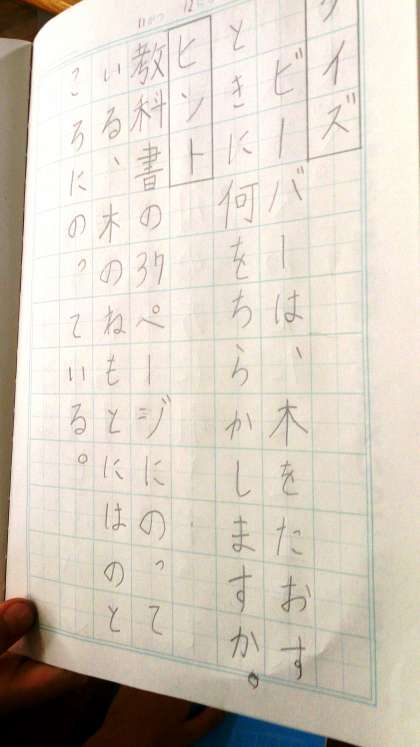 11がつ 12
クイズ
ビーバーは、木をたおす
ときに何をちらかしますか。
ヒント
教科書の37ページにのって
いる、木のねもとにはのと
ころにのっている。